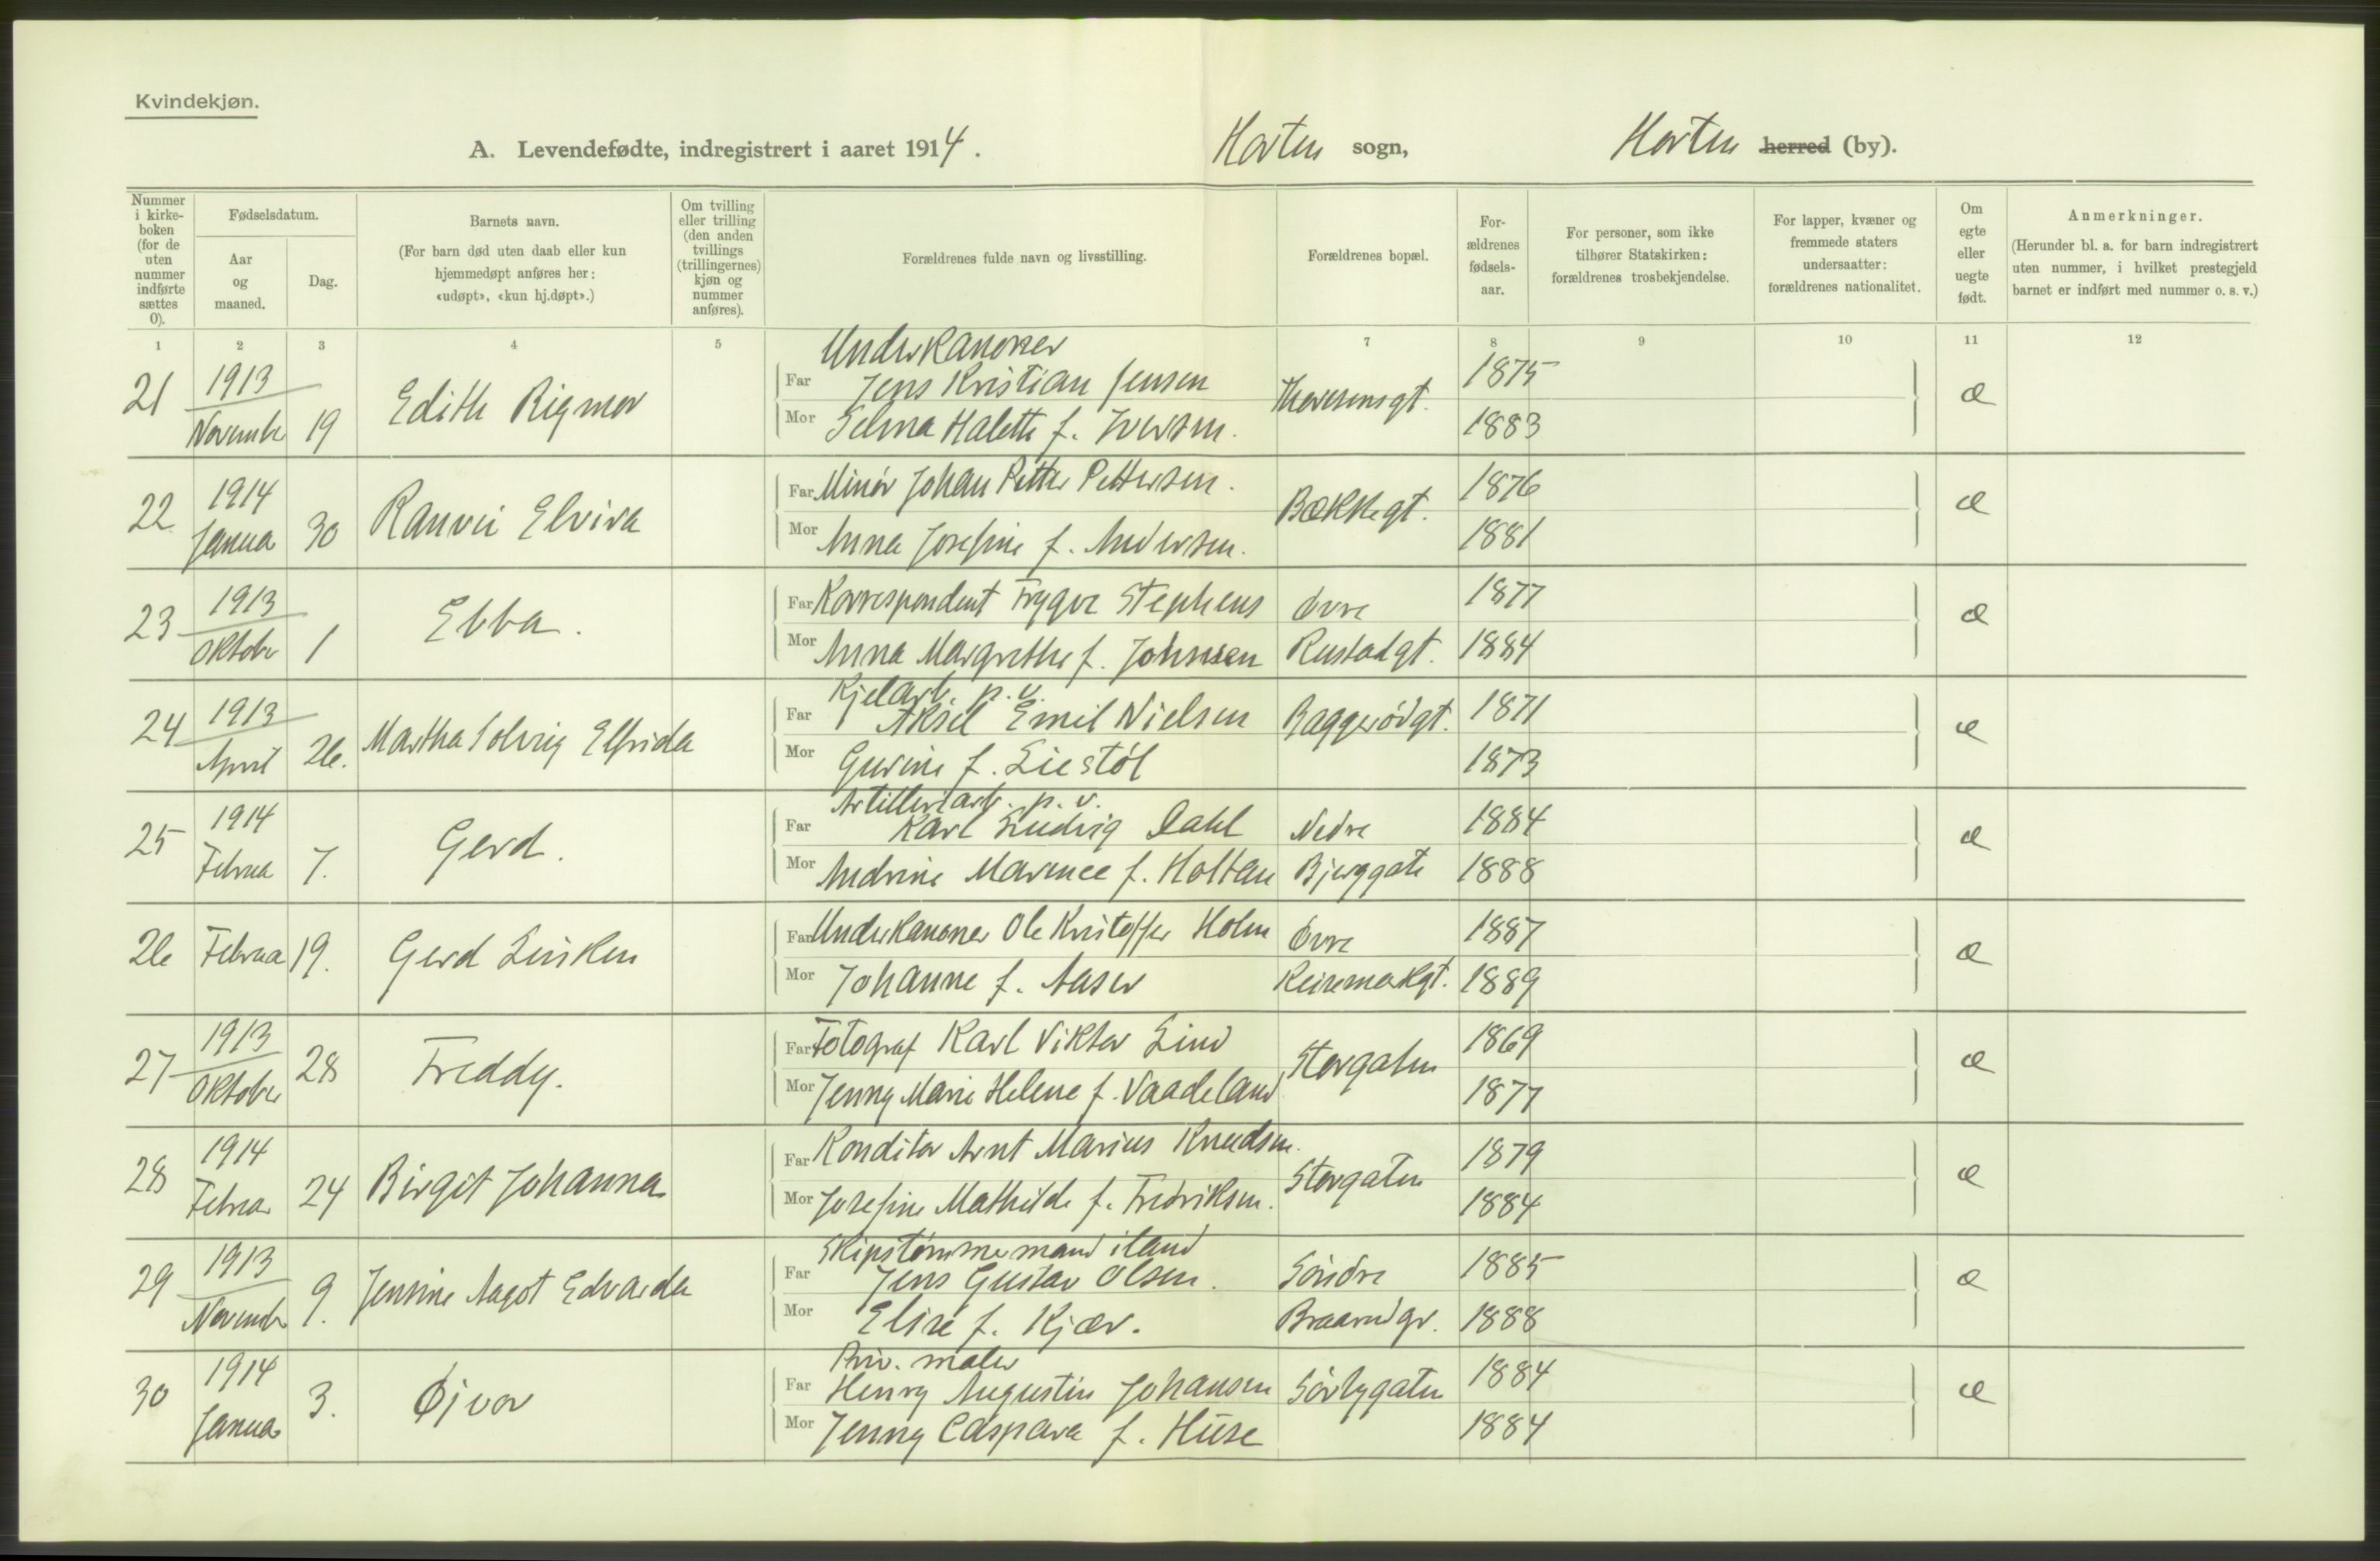 Kvindekjøn.
A. Levendefødte, indregistrert i aaret 1914.
Horten sogn,
Horten herred (by).
Nummer i kirke-boken (for de uten nummer indførte sættes 0).
Fødselsdatum.
Aar og maaned.
Dag.
Barnets navn.
(For barn død uten daab eller kun hjemmedøpt anføres her: «udøpt», «kun hj.døpt».)
Om tvilling eller trilling (den anden tvillings (trillingernes) kjøn og nummer anføres).
Forældrenes fulde navn og livsstilling.
Forældrenes bopæl.
For-ældrenes fødsels-aar.
For personer, som ikke tilhører Statskirken: forældrenes trosbekjendelse.
For lapper, kvæner og fremmede staters undersaatter: forældrenes nationalitet.
Om egte eller uegte født.
Anmerkninger.
(Herunder bl. a. for barn indregistrert uten nummer, i hvilket prestegjeld barnet er indført med nummer o. s. v.)
1 2 3 4 5 7 8 9 10 11 12
21 1913 Novembr 19 Edith Rigmor
Underkanoner
Far Jens Kristian Jensen Theresensgt. 1875 æ
Mor Selma Halette f. Iversen. 1883
22 1914 Januar 30 Ranvei Elvira
Far Minør Johan Petter Pettersen. Bækkegt. 1876 æ
Mor Anna Josefine f. Andersen. 1881
23 1913 Oktober 1 Ebba.
Far Korrespondent Trygve Stephens Øvre 1877 æ
Mor Anna Margrethe f. Johnsen Rustadgt. 1884
24 1913 April 26. Martha Solveig Elfrida
Kjelarb. p.v.
Far Aksel Emil Nielsen Baggerødgt. 1871 æ
Mor Gurine f. Liestøl 1873
25 1914 Februar 7. Gerd.
Artilleriarb. p. v.
Far Karl Ludvig Dahl Nedre 1884 æ
Mor Andrine Marence f. Holtan Bjerggate 1888
26 Februar 19. Gerd Linken
Far Underkanoner Ole Kristoffer Holm Øvre 1887 æ
Mor Johanne f. Aaser Keisemarkgt. 1889
27 1913 Oktober 28 Freddy.
Far Fotograf Karl Viktor Lind Storgaten 1869 æ
Mor Jenny Marie Helene f. Vaadeland 1877
28 1914 Februar 24 Birgit Johanna
Far Konditor Arnt Marius Knudsen. Storgaten 1879 æ
Mor Josefine Mathilde f. Fredriksen. 1884
29 1913 Novembr 9. Jensine Aagot Edvarda
Skipstømmermand iland
Far Jens Gustav Olsen. Søndre 1885 æ
Mor Elise f. Kjær. Braarudgt. 1888
30 1914 Januar 3. Øivor
Priv. maler
Far Henry Augustin Johansen Sørbygaten 1884 æ
Mor Jenny Caspara f. Huse 1884